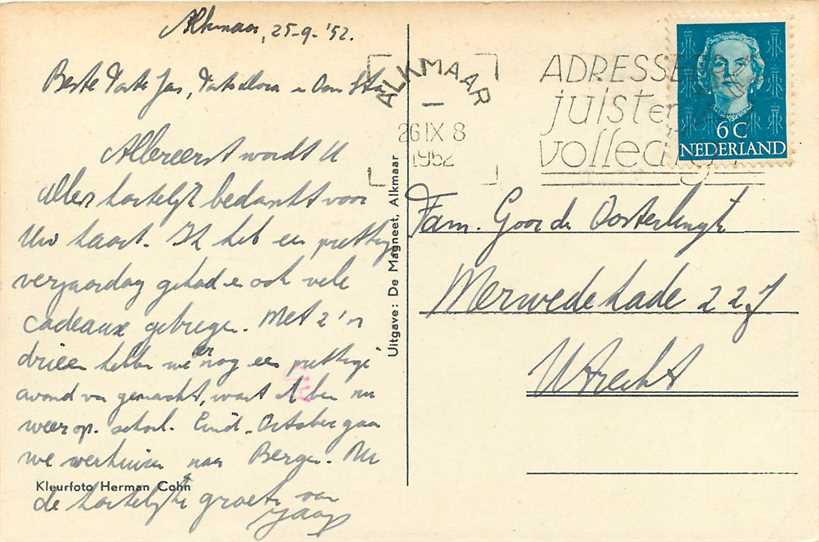 Alkmaar, 25-9-'52.
Beste Tante Jas, Tante en Oom
Allereerst wordt U
allen hartelijk bedankt voor
Uw kaart. Ik heb een prettige
verjaardag gehad en ook vele
cadeaux gekregen. Met z'n
drieën hebben we er nog een prettige
avond van gemaakt, want ik ben nu
weer op school. Eind October gaan
we verhuizen naar Bergen. Nu
de hartelijke groeten van
Jaap
Kleurfoto Herman Cohn
Uitgave: De Magneet, Alkmaar
ALKMAAR
26 IX 8
1952
ADRESSEER
juist en
volledig
6 C
NEDERLAND
Fam. Goor de
Merwedekade 227
Utrecht